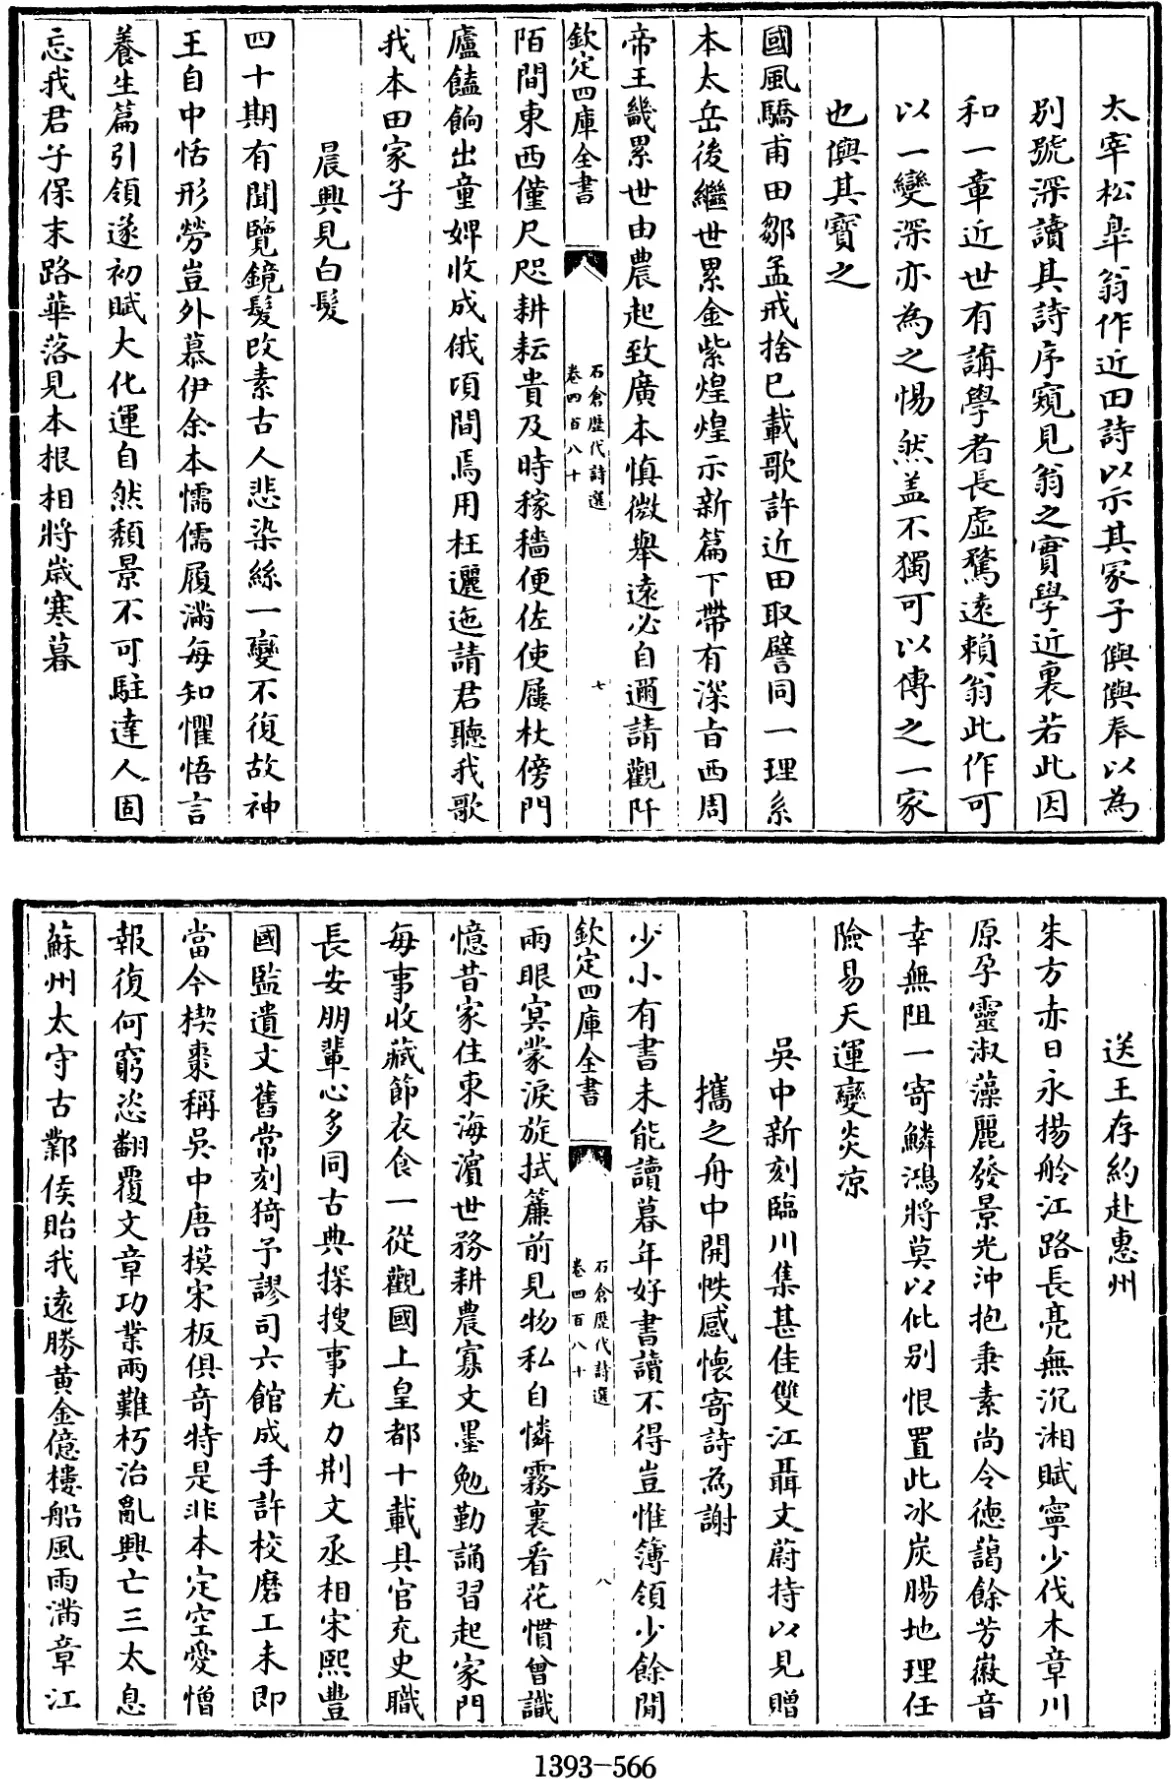 太宰松臯翁作近田詩以示其冢子㒜㒜奉以為
别號深讀其詩序窺見翁之實學近裏若此因
和一章近世有講學者長虛騖逺賴翁此作可
以一變深亦為之惕然盖不獨可以傳之一家
也㒜其寳之
國風驕甫田鄒孟戒捨已載歌許近田取譬同一理系
本太岳後繼世累金紫煌煌示新篇下帶有深㫖西周
帝王畿累世由農起致廣本慎微舉逺必自邇請觀阡
欽定四庫全書
石倉歴代詩選
卷四百八十
七
陌間東西僅尺咫耕耘貴及時稼穡便佐使屐杖傍門
廬饁餉出童婢收成俄頃間焉用枉邐迤請君聽我歌
我本田家子
晨興見白髮
四十期有聞覽鏡髮改素古人悲染絲一變不復故神
王自中恬形勞豈外慕伊余本懦儒履滿每知懼悟言
養生篇引領遂初賦大化運自然頽景不可駐達人固
忘我君子保末路華落見本根相將歳寒暮
送王存約赴惠州
朱方赤日永揚舲江路長亮無沉湘賦寧少伐木章川
原孕靈淑藻麗發景光沖抱秉素尚令徳藹餘芳徽音
幸無阻一寄鱗鴻將莫以仳别恨置此冰炭腸地理任
險易天運變炎凉
吳中新刻臨川集甚佳雙江聶文蔚持以見贈
攜之舟中開帙感懷寄詩為謝
少小有書未能讀暮年好書讀不得豈惟簿領少餘閒
兩眼㝠蒙淚旋拭簾前見物私自憐霧裏看花慣曾識
欽定四庫全書
石倉歴代詩選
卷四百八十
八
憶昔家住東海濵世務耕農寡文墨勉勤誦習起家門
每事收藏節衣食一從觀國上皇都十載具官充史職
長安朋輩心多同古典探搜事尤力荆文丞相宋熙豐
國監遺文舊常刻猗予謬司六館成手許校磨工未即
當今楔棗稱吳中唐模宋板俱竒特是非本定空愛憎
報復何窮恣翻覆文章功業兩難朽治亂興亡三太息
蘇州太守古鄴侯貽我逺勝黄金億樓船風雨滿章江
1393-566